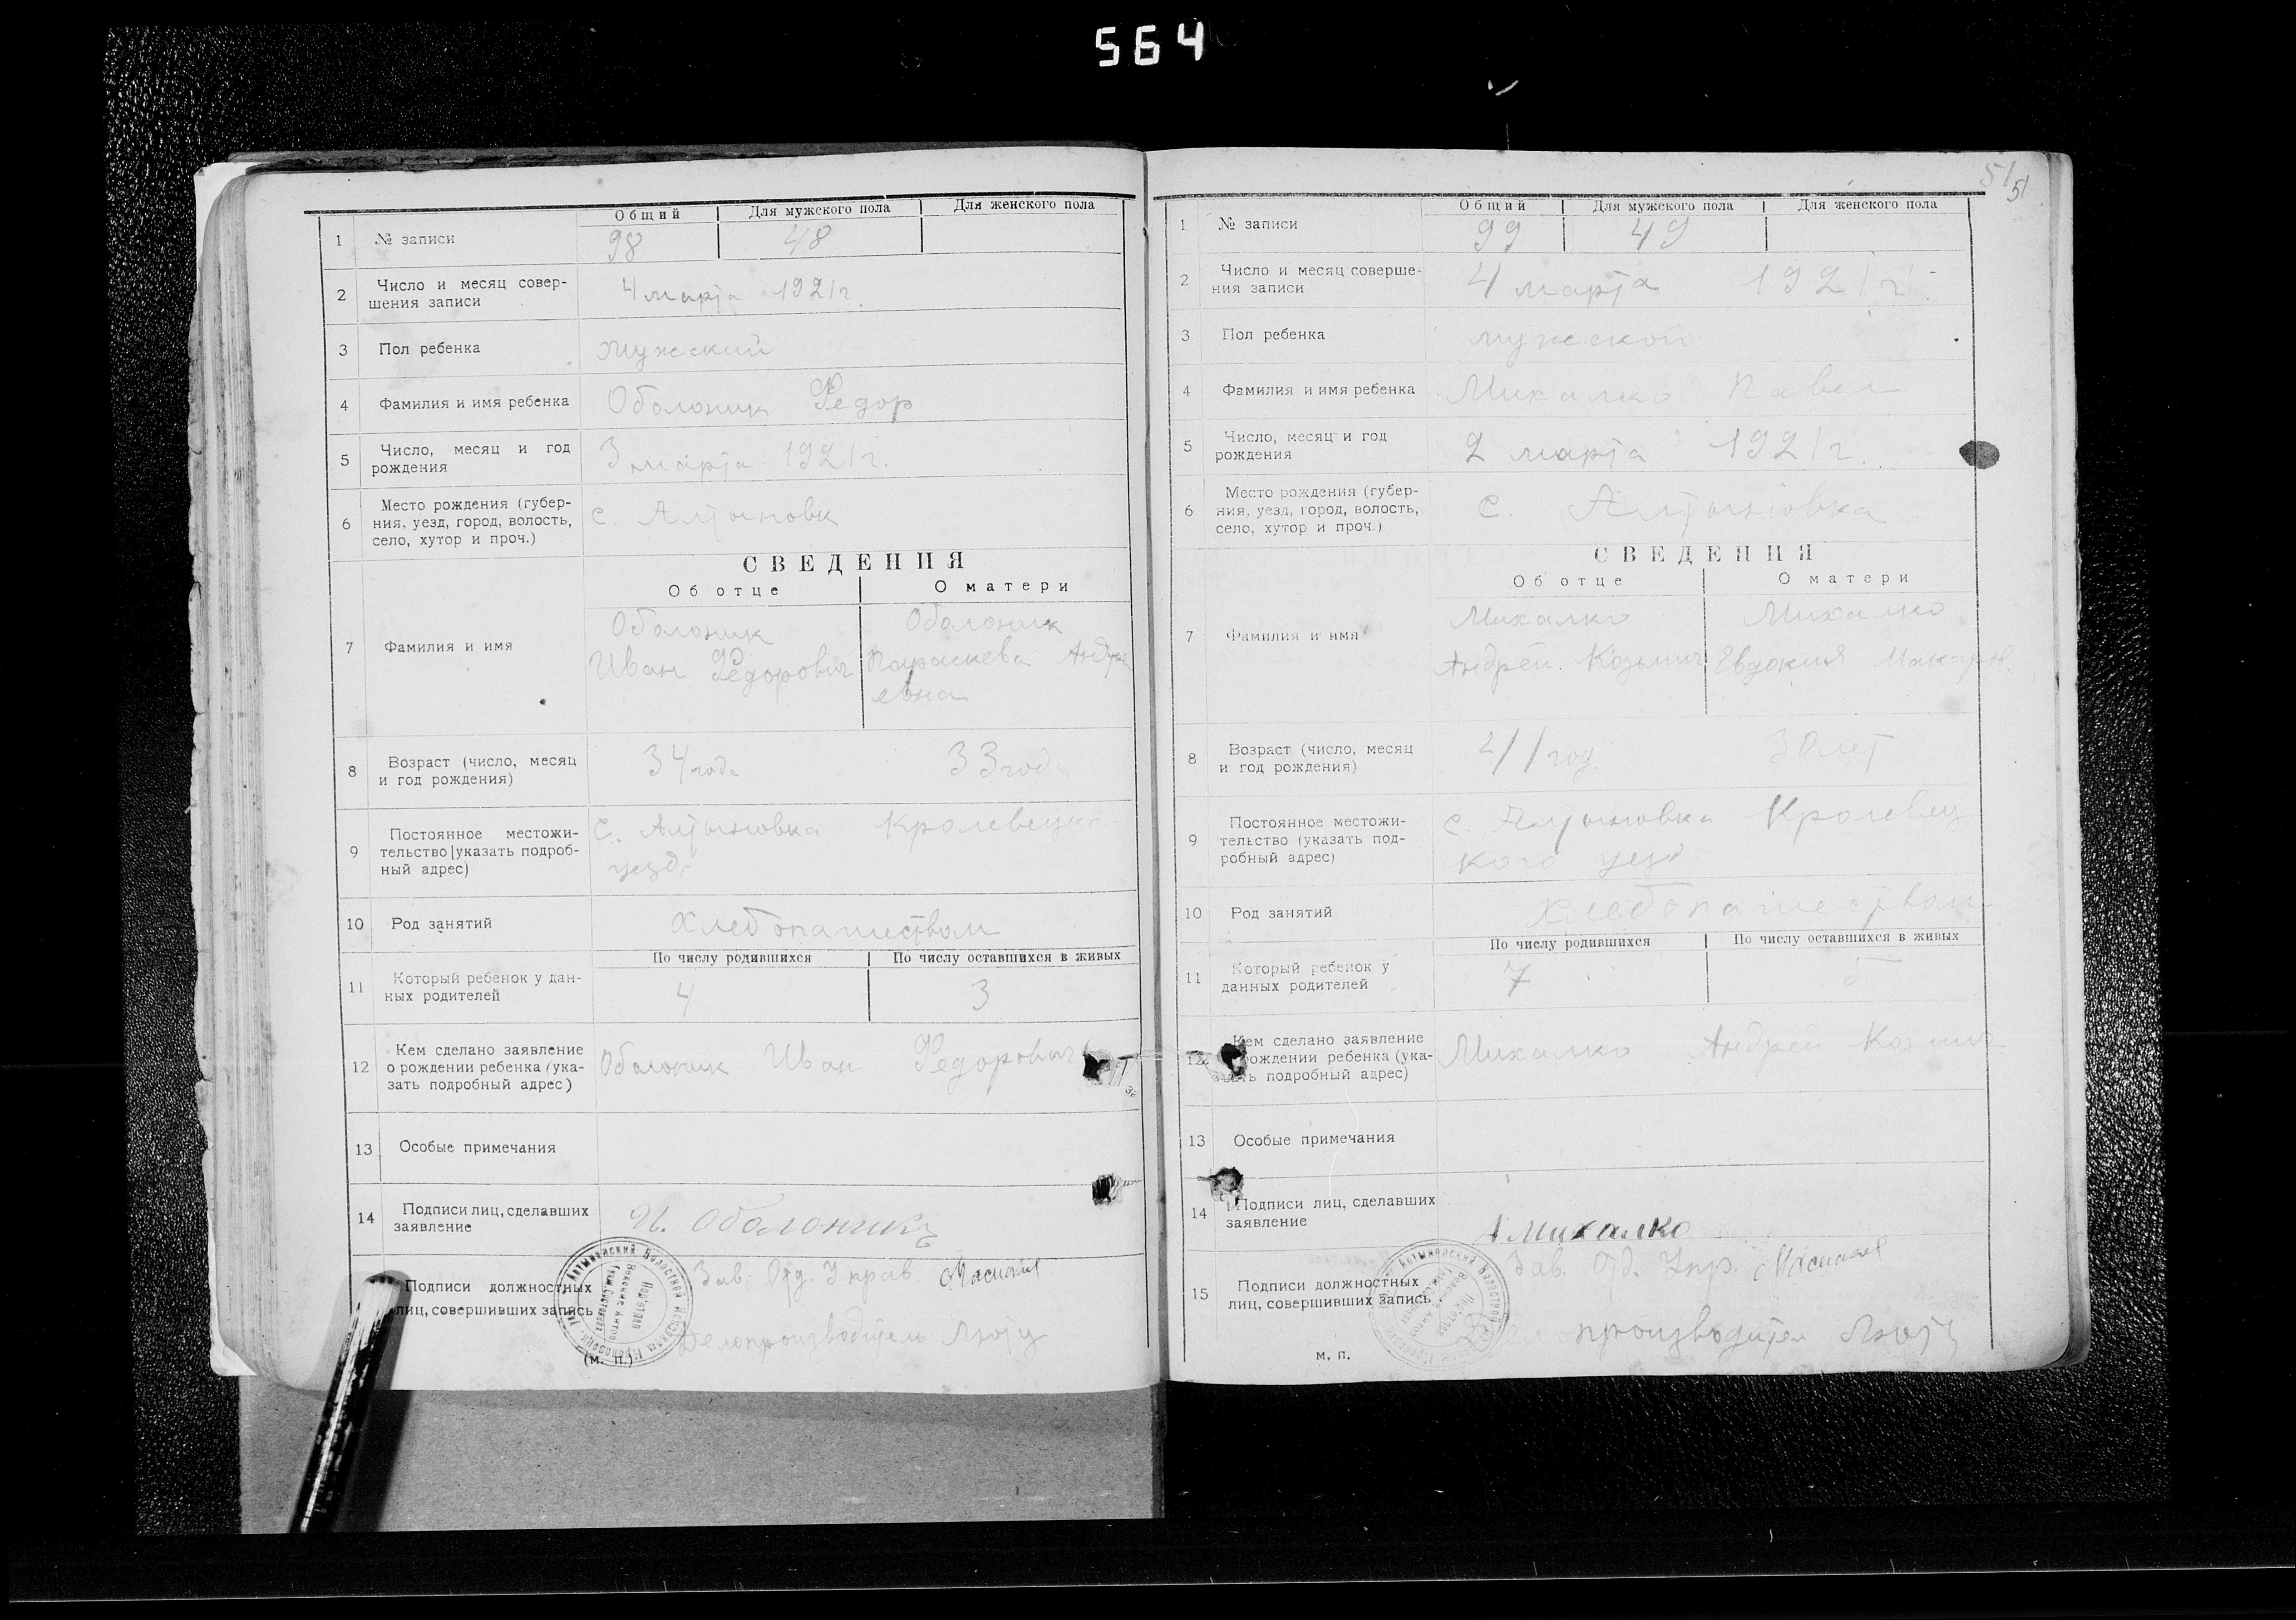 564
Общий Для мужского пола Для женского пола
1 № записи 98 48
2 Число и месяц совер-
шения записи 4 марта 1921 г.
3 Пол ребенка мужский
4 Фамилия и имя ребенка Оболоник Федор
5 Число, месяц и год
рождения 3 марта 1921 г.
6 Место рождения (губер-
ния, уезд, город, волость,
село, хутор и проч.) с. Алтыновк
СВЕДЕНИЯ
Об отце О матери
7 Фамилия и имя
Оболоник Оболоник
Иван Федорович Параскева Андре
евна
8 Возраст (число, месяц
и год рождения) 34 года 33 года
9 Постоянное местожи-
тельство (указать подроб-
ный адрес)
с. Алтыновка Кролевецко
уезда
10 Род занятий Хлебопашеством
По числу родившихся По числу оставшихся в живых
11 Который ребенок у дан-
ных родителей 4 3
12 Кем сделано заявление
о рождении ребенка (ука-
зать подробный адрес) Оболоник Иван Федорович
13 Особые примечания
14 Подписи лиц, сделавших
заявление И. Оболоникъ
Подписи должностных
лиц, совершивших запись
Зав. Отд. Управ
Делопроизводитель
(м. п.)
51 51
Общий Для мужского пола Для женского пола
1 № записи 99 49
2 Число и месяц соверше-
ния записи 4 марта 1921 г.
3 Пол ребенка мужской
4 Фамилия и имя ребенка Михалко Павел
5 Число, месяц и год
рождения 2 марта 1921 г.
6 Место рождения (губер-
ния, уезд, город, волость,
село, хутор и проч.) с. Алтыновка
СВЕДЕНИЯ
Об отце О матери
7 Фамилия и имя
Михалко Михалко
Андрей Козьмич Евдокия Макарж.
8 Возраст (число, месяц
и год рождения) 41 год 30 лет
9 Постоянное местожи-
тельство (указать под-
робный адрес)
с. Алтыновка Кролевец
кого уезд
10 Род занятий Хлебопашеством
По числу родившихся По числу оставшихся в живых
11 Который ребенок у
данных родителей 7
12 Кем сделано заявление
о рождении ребенка (ука-
зать подробный адрес) Михалко Андрей Козмич
13 Особые примечания
14 Подписи лиц, сделавших
заявление А Михалко
15 Подписи должностных
лиц, совершивших запись
Зав. Отд. Упр.
производител
м. п.